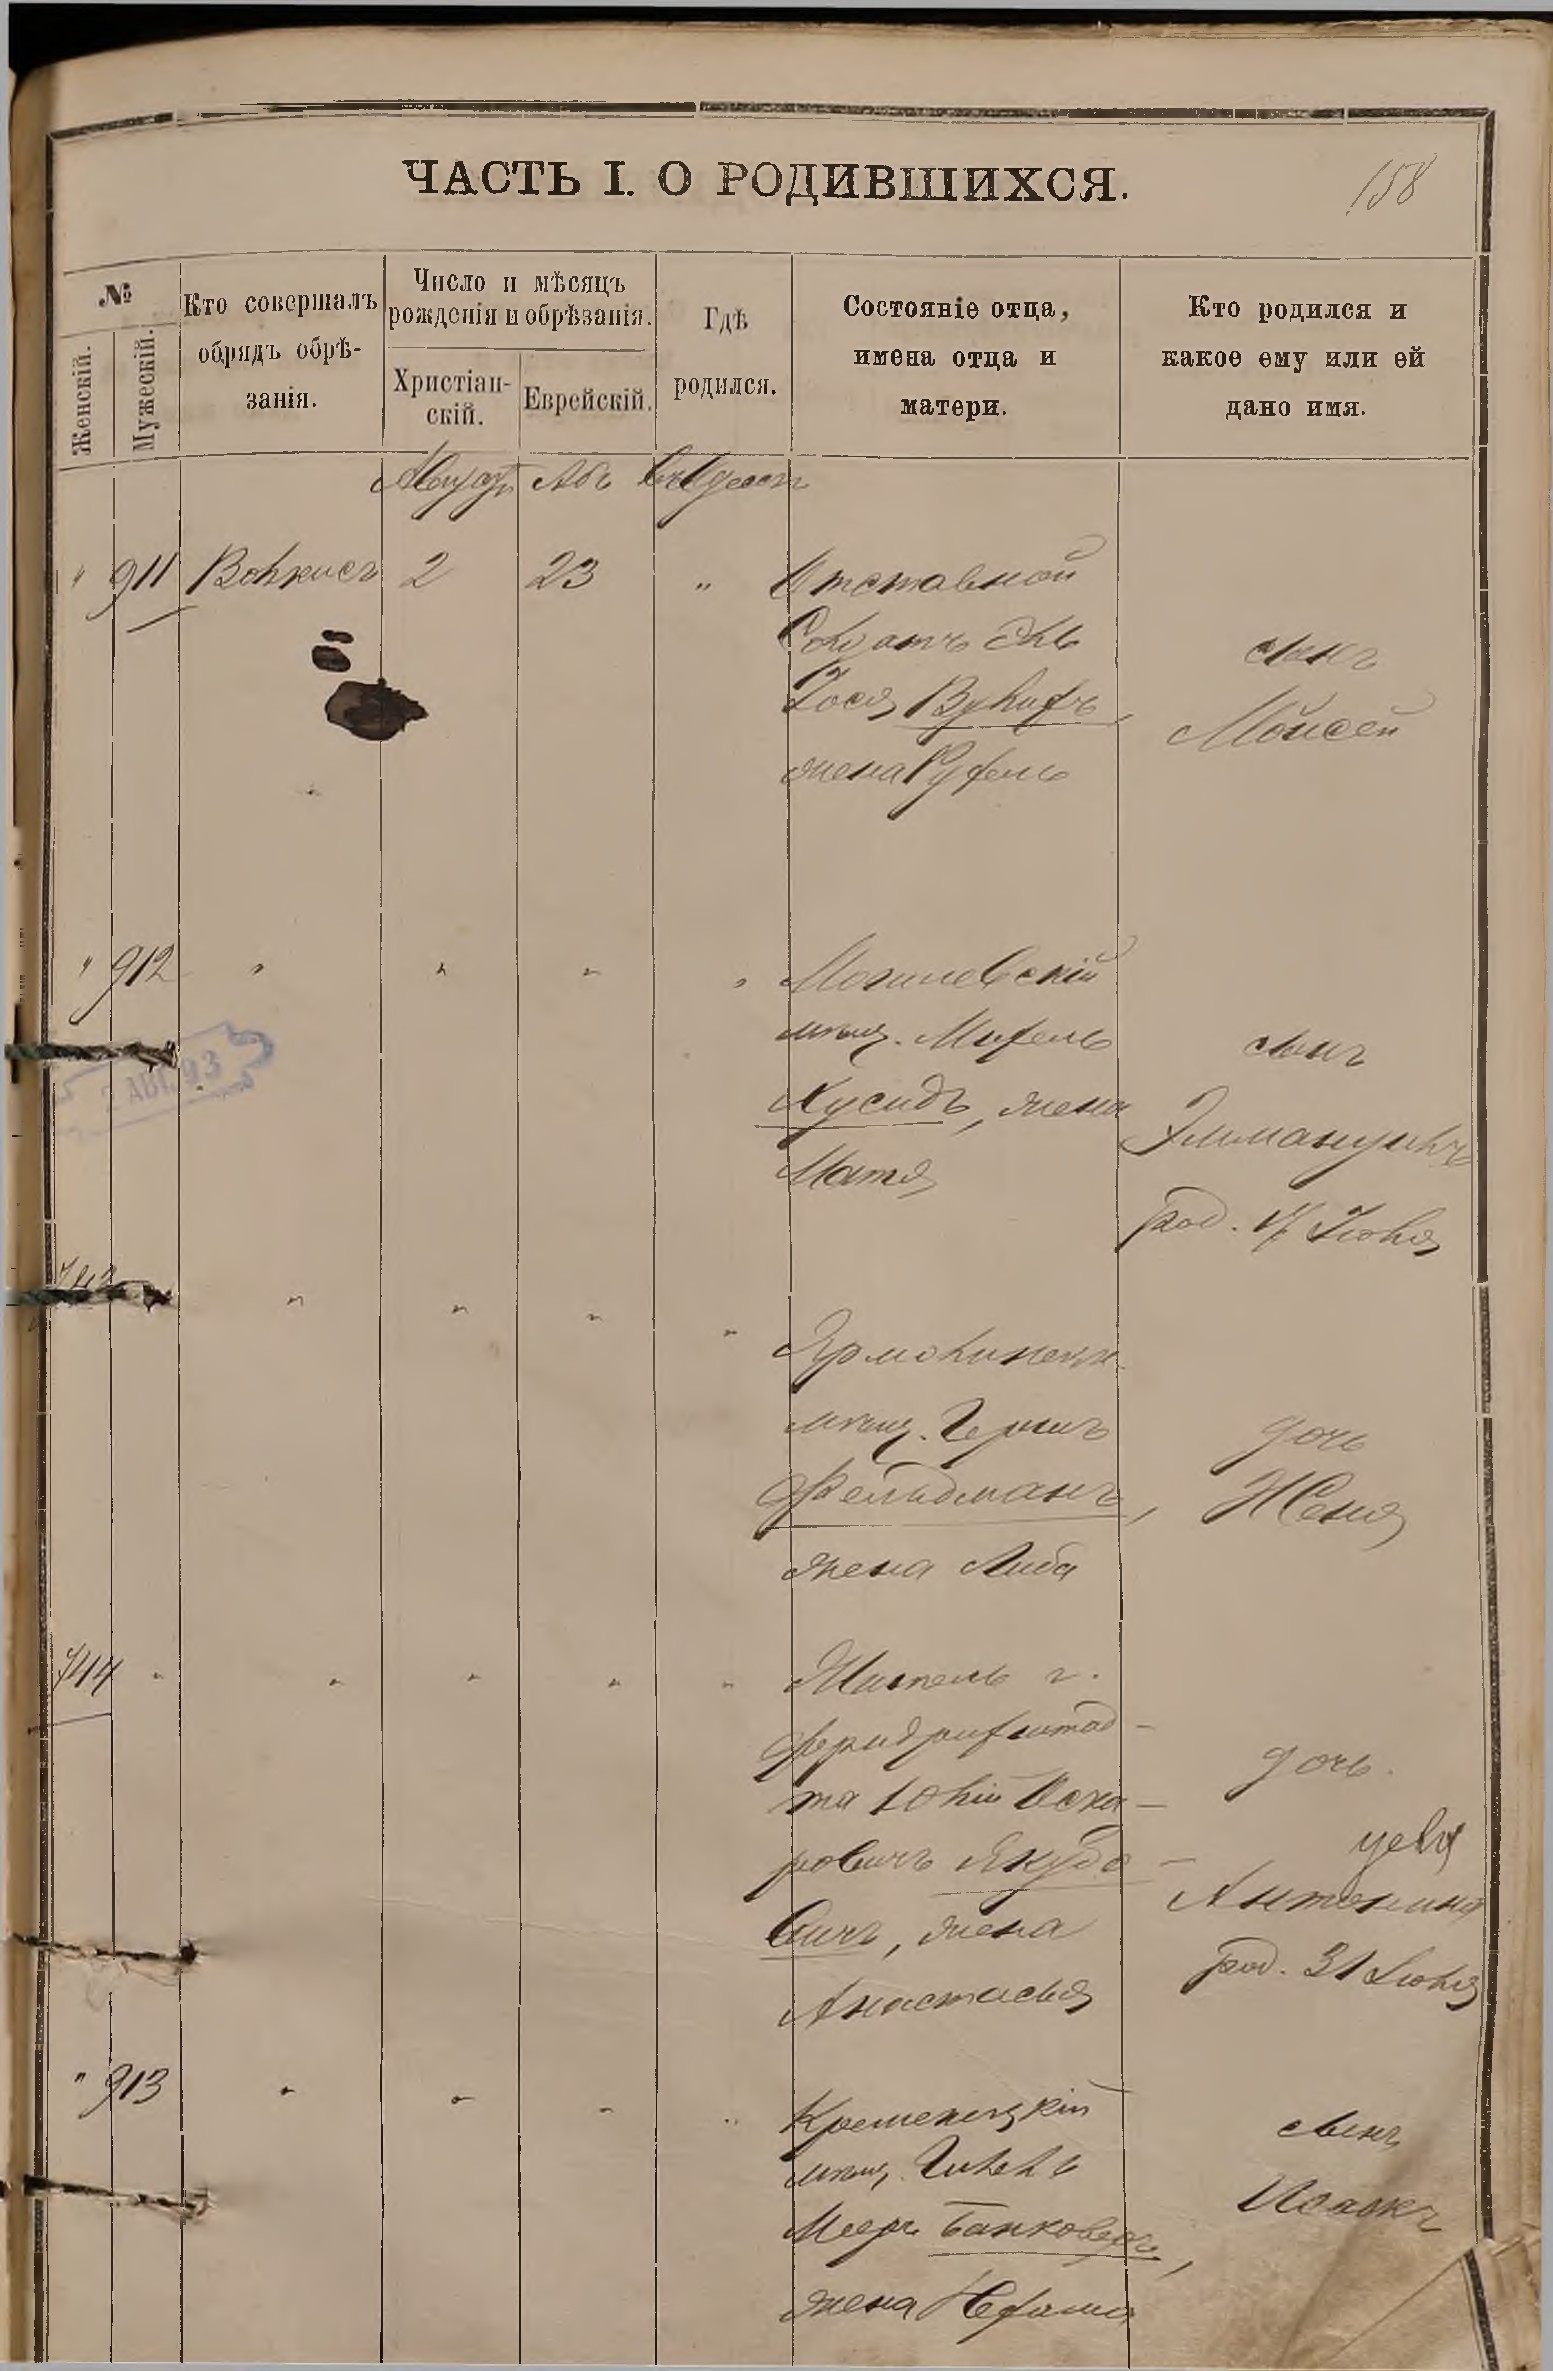 ЧАСТЬ I. О РОДИВШИХСЯ.
158
№
Женскій.
Мужескій.
Кто совершалъ
обрядъ обрѣ-
занія.
Число и мѣсяцъ
рожденія и обрѣзанія.
Христіан-
скій.
Еврейскій.
Гдѣ
родился.
Состояніе отца,
имена отца и
матери.
Кто родился и
какое ему или ей
дано имя.
Августъ Абъ въ Одессѣ
" 911 2 23 "
Отставной
Солдатъ
Іося
жена Рухель
сынъ
Мойсей
" 912 " " " "
Могилевскій
мѣщ. Михель
Кусидъ, жена
Матя
сынъ
Эммануилъ
род. Іюля
2 АВГ 93
743 " " " "
мѣщ. Гершъ
Фельдманъ,
жена Либа
дочь
Женя
744 " " " " "
Житель г.
Фридрихштад-
та Юлій Оска-
ровичъ Якубо-
вичъ, жена
Анастасья
дочь
Антонина
род. 31 Іюля
" 913 " " " "
Кременецкій
мѣщ. Гиллель
Мееръ Банковеръ,
жена Нехама
сынъ
Исаакъ